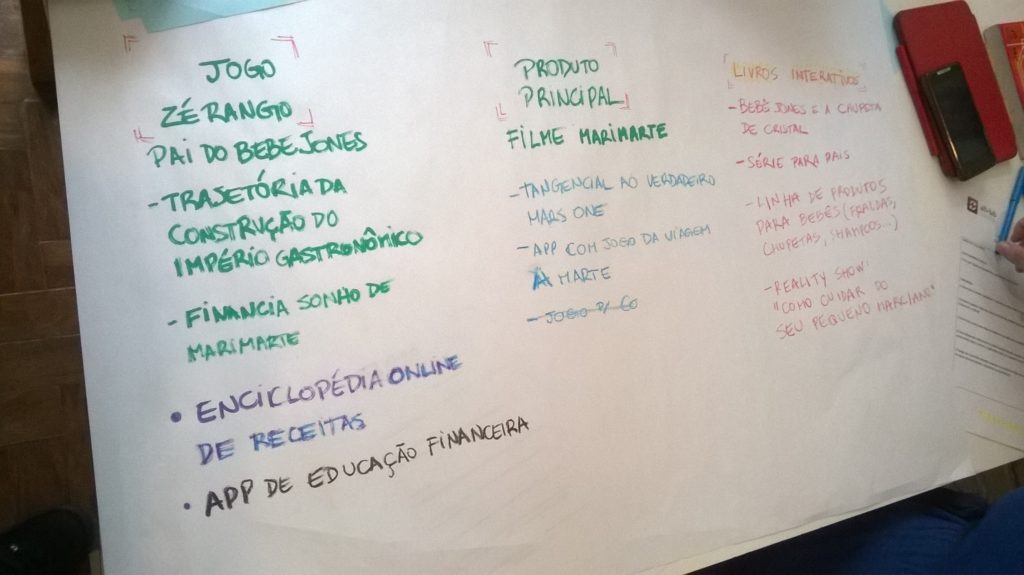 JOGO
ZÉ RANGO
PAI DO BEBE JONES
- TRAJETÓRIA DA
CONSTRUÇÃO DO
IMPÉRIO GASTRONÔMICO
- FINANCIA SONHO DE
MARIMARTE
• ENCICLOPÉDIA ONLINE
DE RECEITAS
• APP DE EDUCAÇÃO FINANCEIRA
PRODUTO
PRINCIPAL
FILME MARIMARTE
- TANGENCIAL AO VERDADEIRO
MARS ONE
- APP COM JOGO DA VIAGEM
A MARTE
- JOGO P/ CO
LIVROS INTERATIVOS
- BEBÊ JONES E A CHUPETA
DE CRISTAL
- SÉRIE PARA PAIS
- LINHA DE PRODUTOS
PARA BEBÊS (FRALDAS,
CHUPETAS, SHAMPOOS...)
- REALITY SHOW:
"COMO CUIDAR DO
SEU PEQUENO MARCIANO"